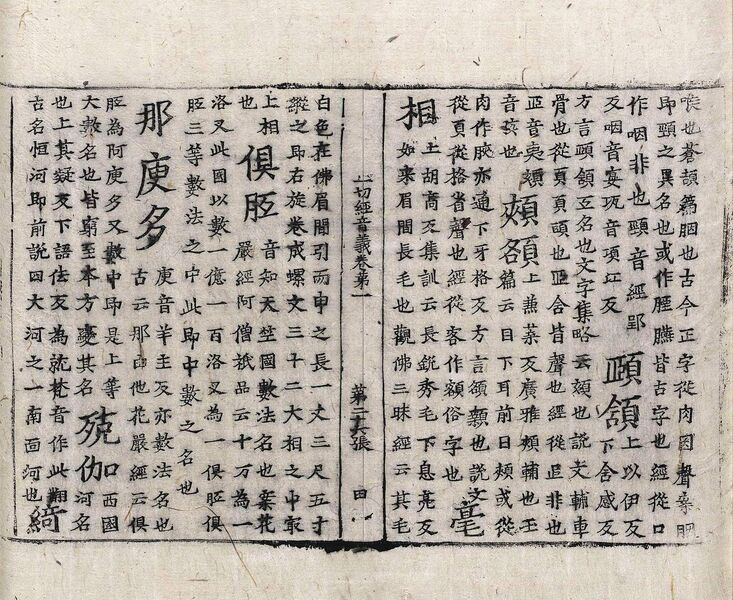 喉也蒼頡篇咽也古今正字從肉因聲桑胭
即頸之異名也或作胵臙皆古字也經從口
作咽非也頸音經郢
反咽音宴巩音項江反
頥頷
上以伊反
下含感反
方言頤頷互名也文字集略云頷也說文輔車
骨也從頁頁頭也含皆聲也經從非也
音夷頰
音孩也
頰額
上兼葉反廣雅頰輔也玉
篇云目下耳前曰頰或從
肉作脥亦通下牙格反方言頟顙也說文
從頁從格省聲也經從客作額俗字也
毫
相
上胡高反集訓云長銳秀毛下息亮反
如來眉間長毛也觀佛三昧經云其毛
一切經音義卷第一 第二六張 田
白色在佛眉間引而申之長一丈三尺五寸
縱之即右旋卷成螺文三十二大相之中最
上相
也
俱胝
音知天竺國數法名也案花
嚴經阿僧祇品云十万為一
洛叉此國以數一億一百洛叉為一俱胝俱
胝三等數法之中此即中數之名也
那庾多
庾音羊主反亦數法名也
古云那由他花嚴經云俱
胝為阿庾多又數中即是上等
大數名也皆窮至本方憂其名
殑伽
西國
河名
也上其疑反下語佉反為就梵音作此翻
古名恒河即前說四大河之一南面河也
綺